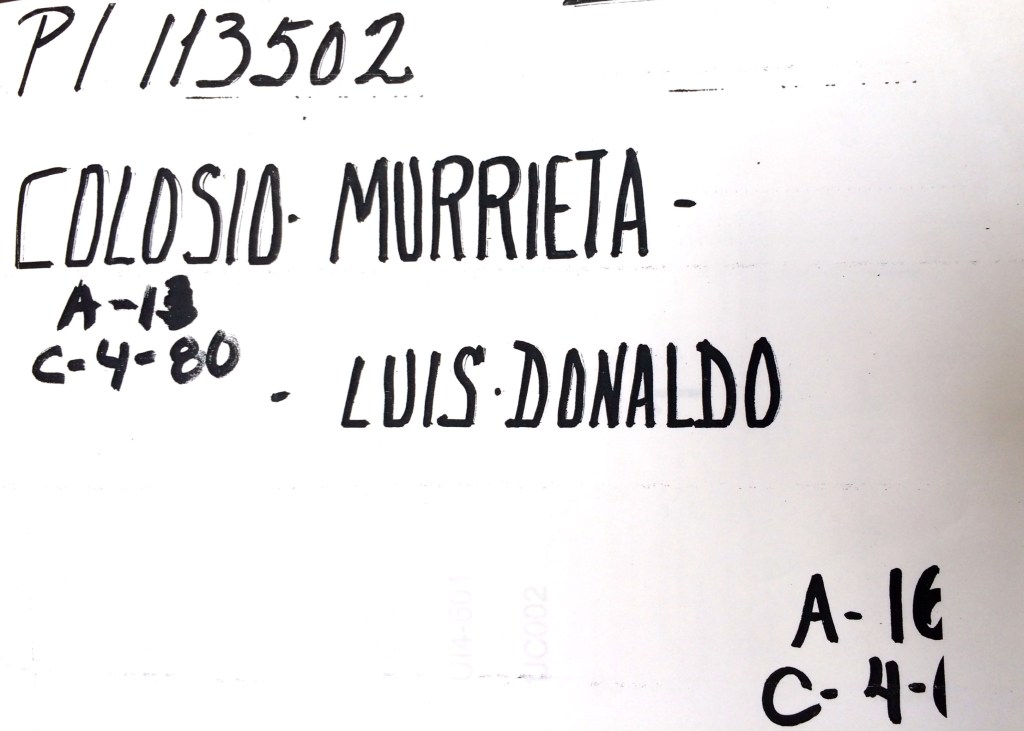 P/ 113502
COLOSIO· MURRIETA -
A-13
C-4-80
- LUIS·DONALDO
A- 16
C- 4-1